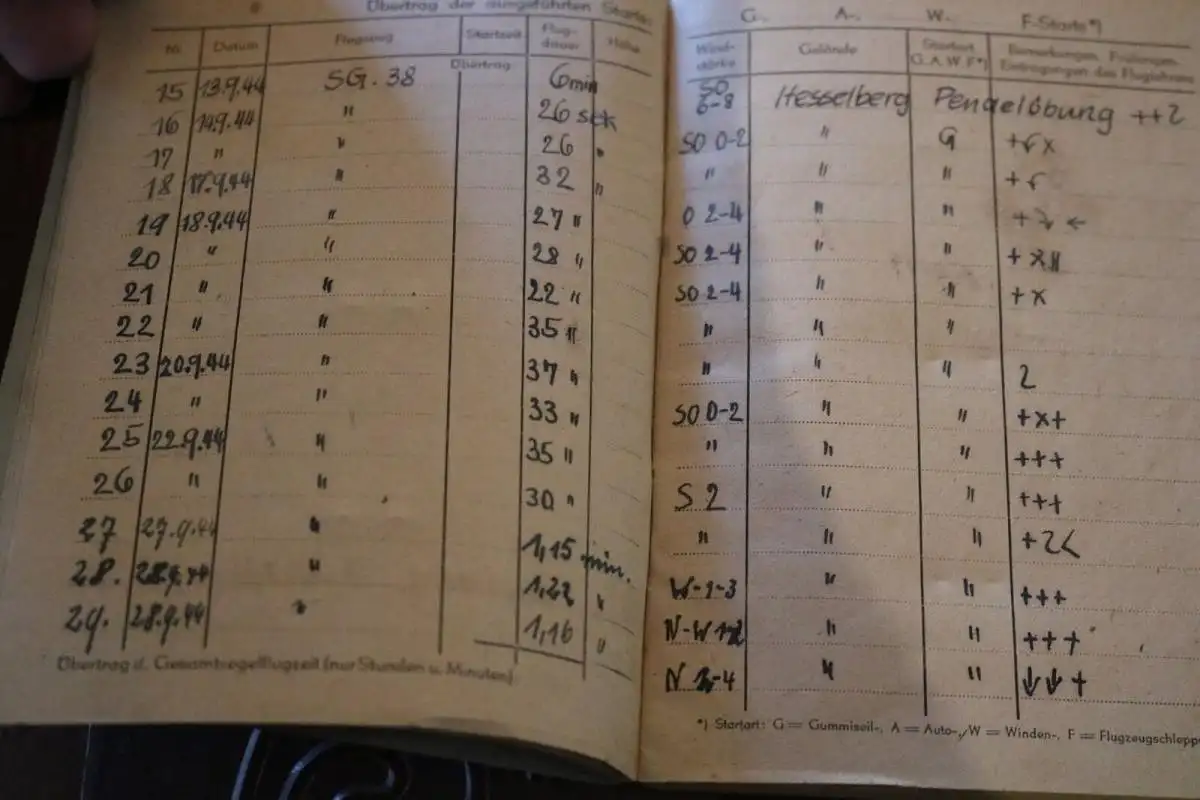 Übertrag der ausgeführten Starts:
Nr. Datum Flugzeug Startzeit Flug-dauer Höhe
Übertrag
15 13.9.44 SG.38 6min
16 14.9.44 " 26 sek
17 " " 26 "
18 17.9.44 " 32 "
19 18.9.44 " 27 "
20 " " 28 "
21 " " 22 "
22 " " 35 "
23 20.9.44 " 37 "
24 " " 33 "
25 22.9.44 " 35 "
26 " " 30 "
27 27.9.44 " 1,15 min.
28. 28.9.44 " "
29. 28.9.44 " 1,16 "
Übertrag d. Gesamtsegelflugzeit (nur Stunden u. Minuten)
G-, A-, W- F-Starts*)
Wind-stärke Gelände Startart G.A.W.F*) Bemerkungen, Prüfungen, Eintragungen des Fluglehrers
SO 6-8 Hesselberg Pendelübung ++2
SO 0-2 " G
" " "
O 2-4 " "
SO 2-4 " "
SO 2-4 " " +x
" " "
" " " 2
SO 0-2 " " +x+
" " " +++
S 2 " " +++
" " " +2<
W-1-3 " " +++
N-W " " +++
N " " ↓↓+
*) Startart: G = Gummiseil-, A = Auto-, W = Winden-, F = Flugzeugschlepp